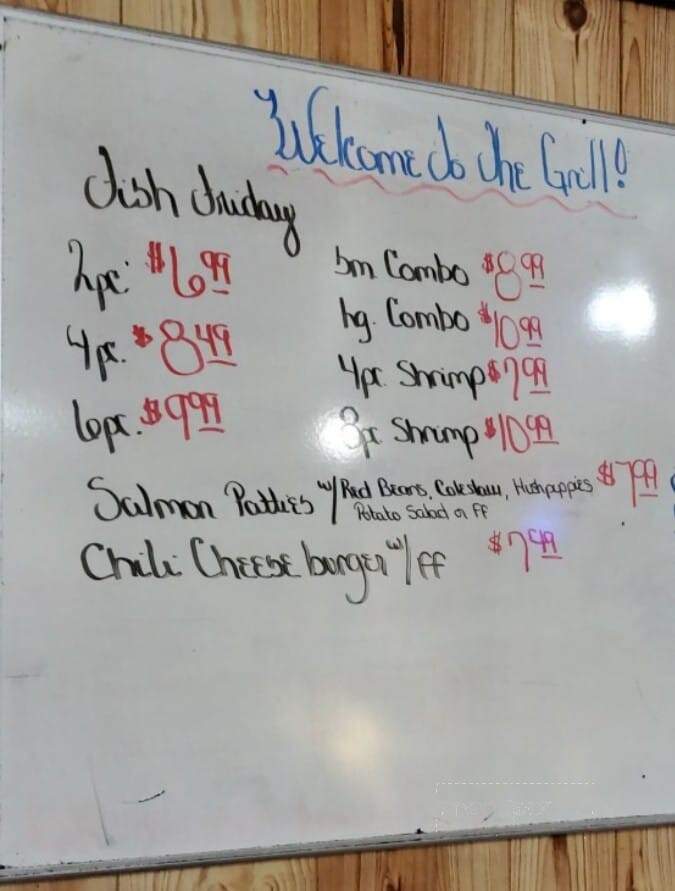 Welcome to the Grill!
Fish Friday
2pc. $6.99
4pc. $8.49
6pc. $9.99
sm Combo $8.99
hg. Combo $10.99
4pc Shrimp $7.99
8pc Shrimp $10.99
Salmon Patties w/ Red Beans, Coleslaw, Hushpuppies $7.99
Potato Salad or FF
Chili Cheese burger w/ FF $7.49